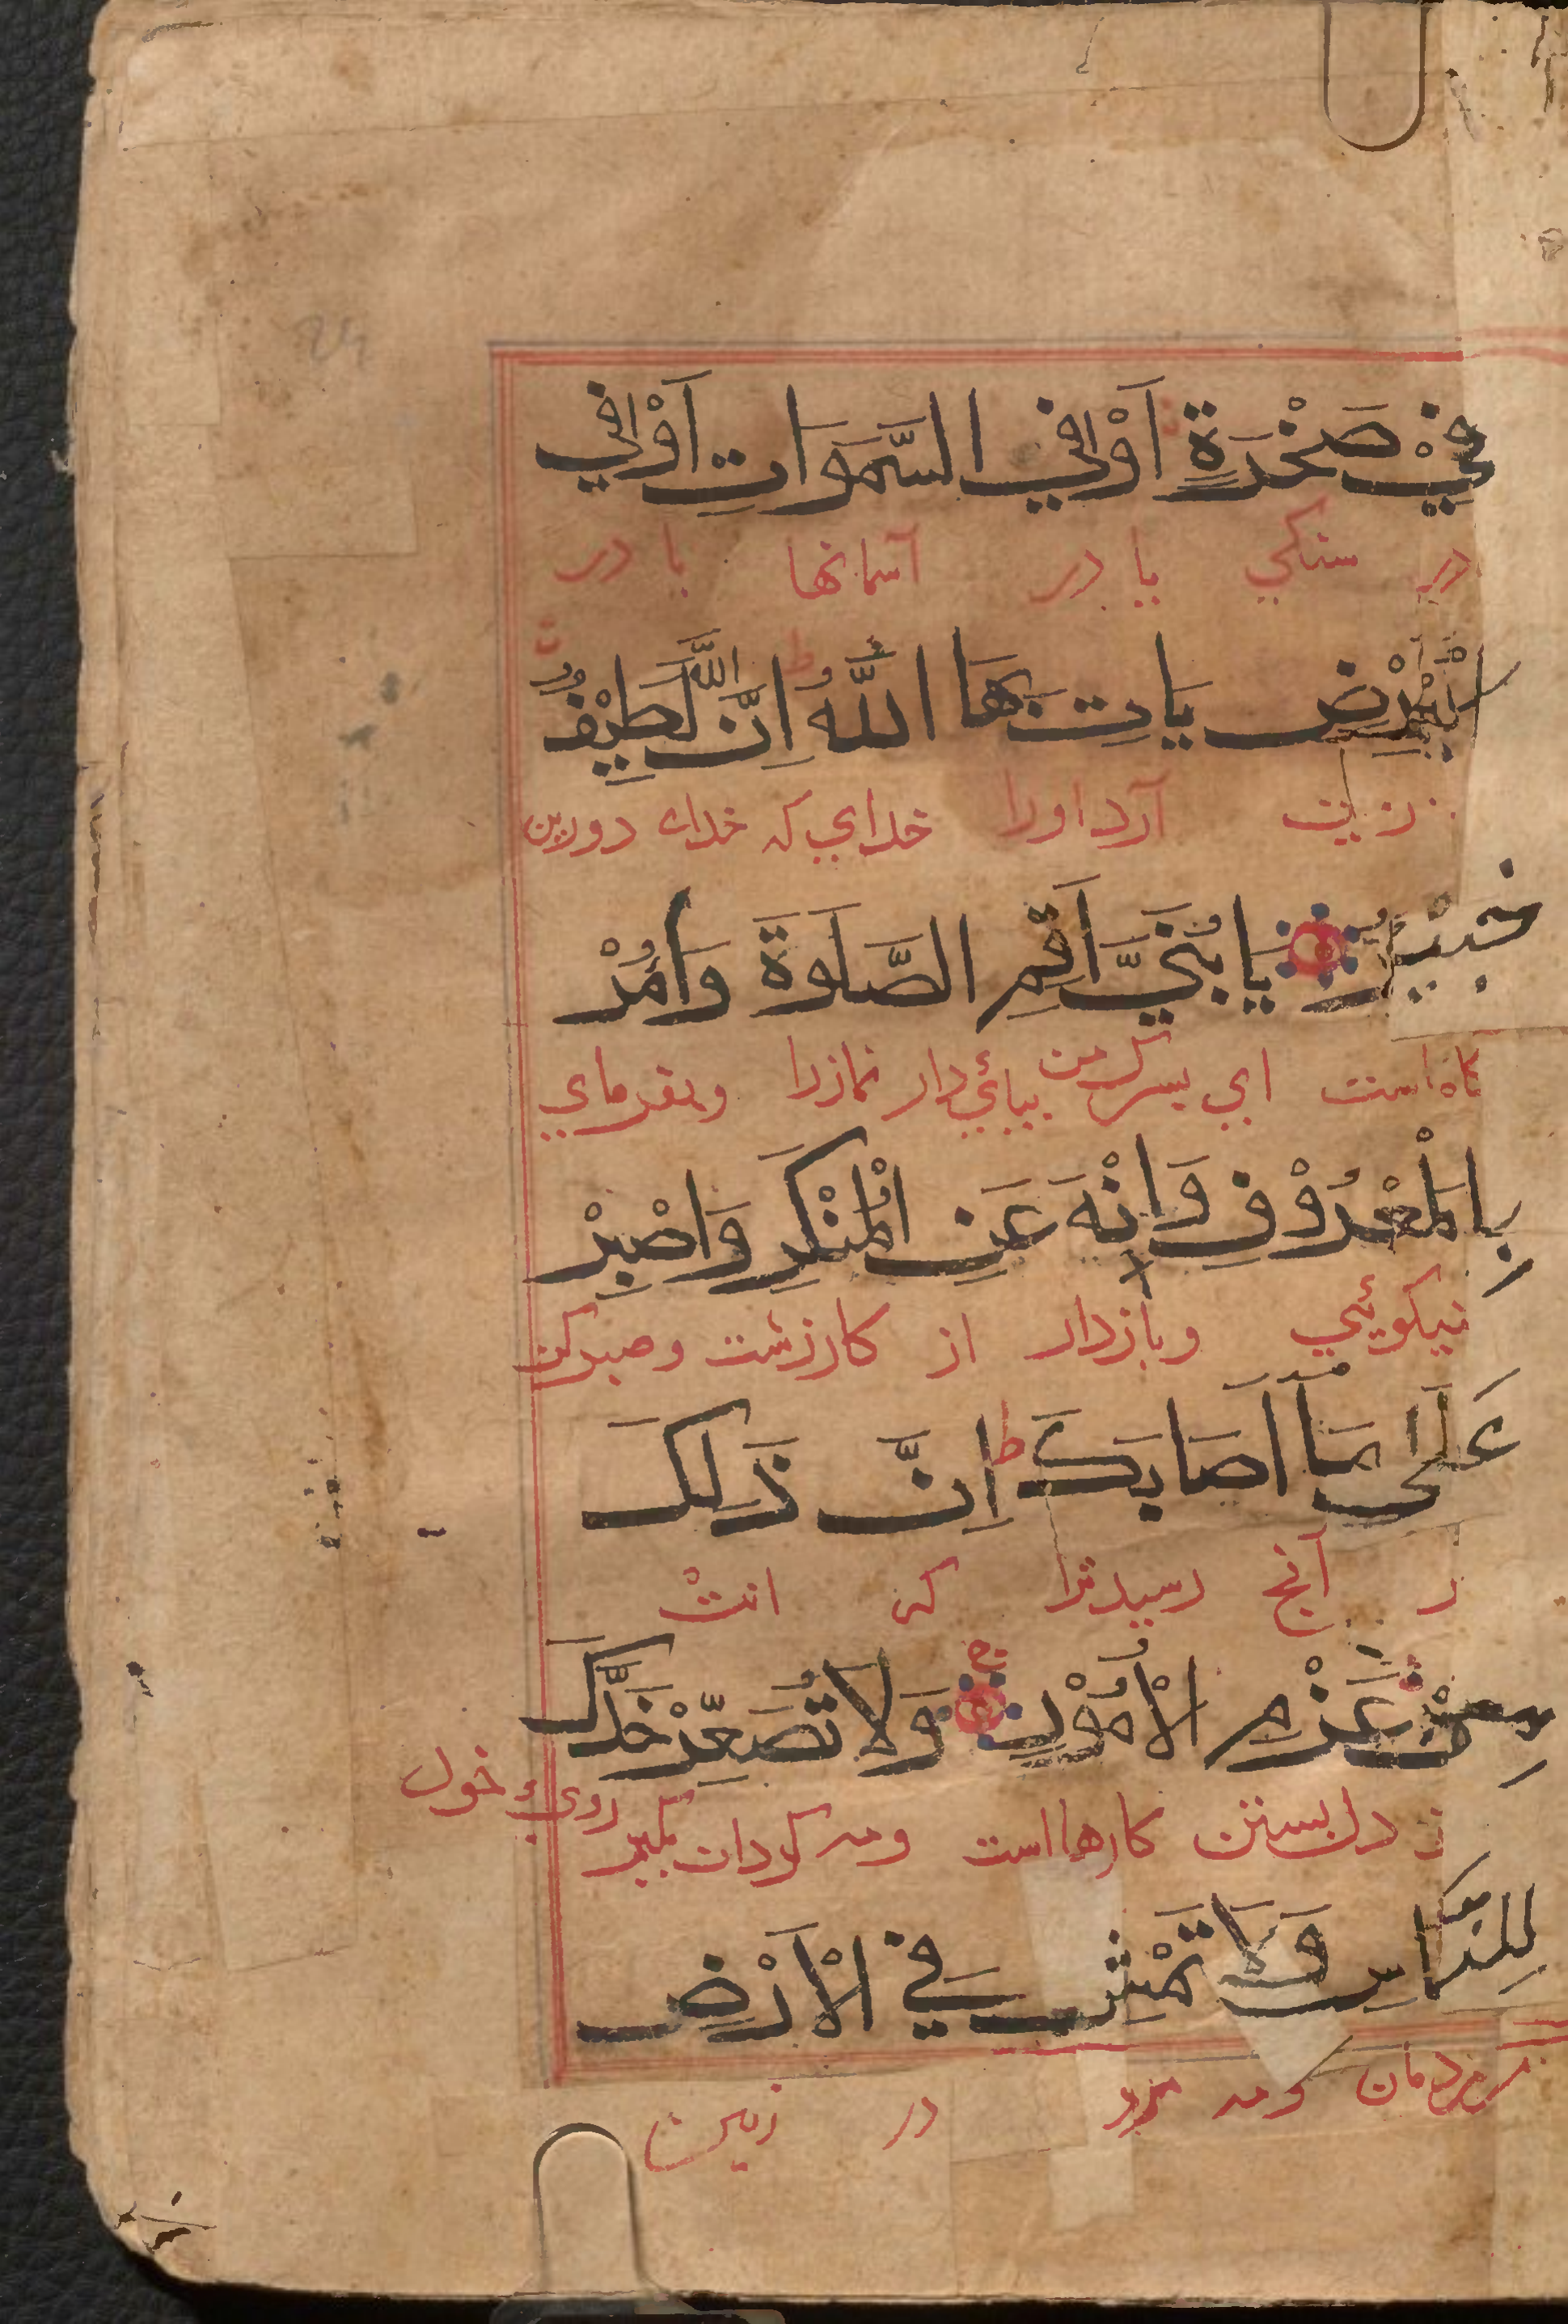 فِيْ صَخْرَةٍ اَوْ فِي السَّمَوَاتِ اَوْ فِي
در سنكي يا در آسمانها يا در
الْاَرْضِ يَاتِ بِهَا اللّٰهُ ط اِنَّ اللّٰهَ لَطِيْفٌ
آرد اورا خداي كه خداء دوربين
خَبِيْرٌ يَا بُنَيَّ اَقِمِ الصَّلَوةَ وَاْمُرْ
كاه است اي پسرك من بپائي دار نمازرا وبفرماي
بِالْمَعْرُوْفِ وَانْهَ عَنِ الْمُنْكَرِ وَاصْبِرْ
نيكوئي وبازدار از كارزشت وصبركن
عَلَى مَا اَصَابَكَ ط اِنَّ ذٰلِكَ
ر آنچ رسيدترا كه
مِنْ عَزْمِ الْاُمُوْرِ ج وَلَا تُصَعِّرْ خَدَّكَ
دل بستن كارها است ومه كردان روي خول
لِلنَّاسِ وَلَا تَمْشِ فِي الْاَرْضِ
مردمان ومه در زمين